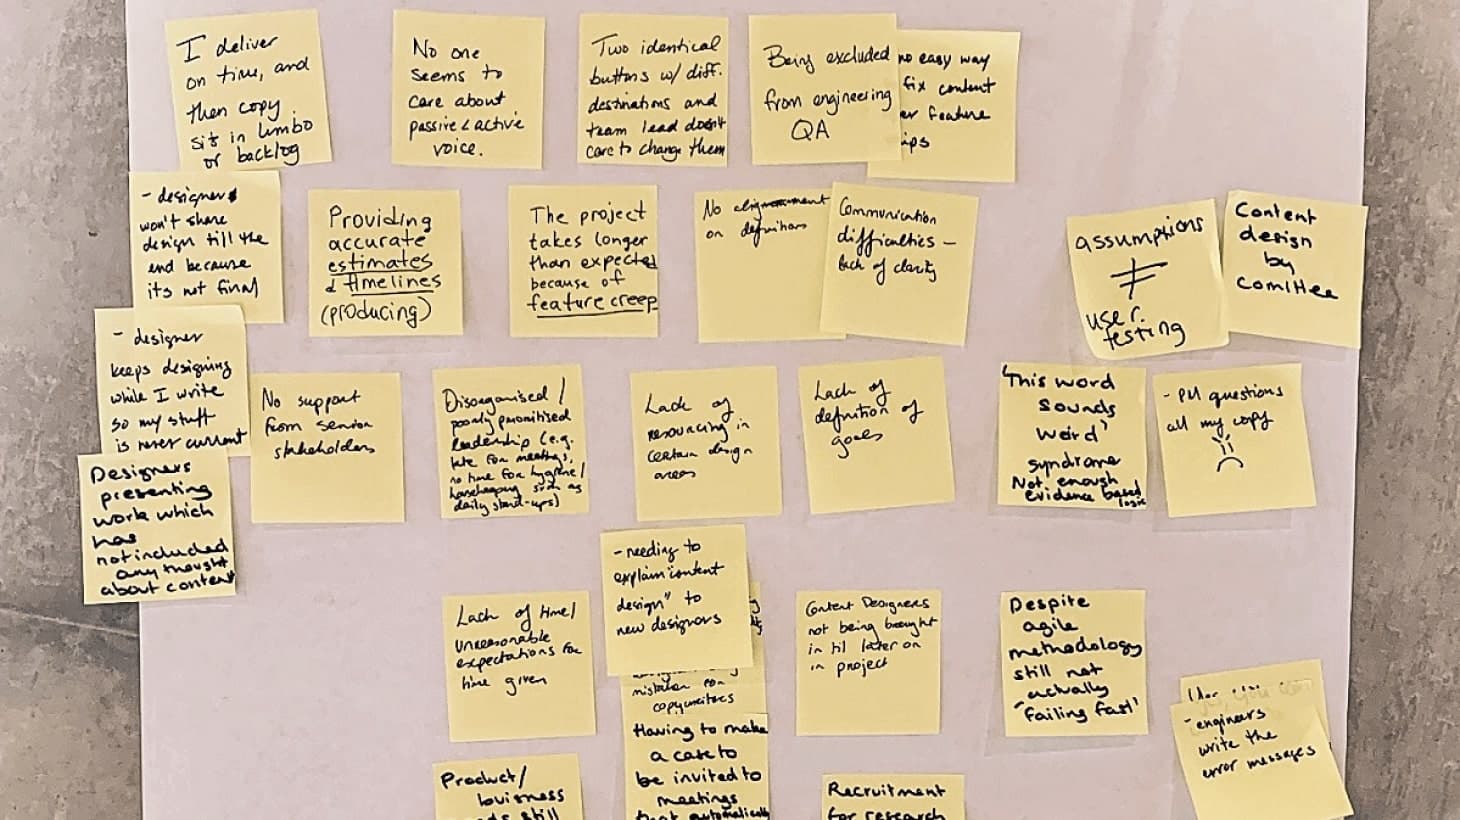 I deliver
on time, and
then copy
sits in limbo
or backlog
No one
seems to
care about
passive & active
voice.
Two identical
buttons w/ diff.
destinations and
team lead doesn't
care to change them
Being excluded
from engineering
QA
no easy way
fix content
er feature
ips
- designers
won't share
design till the
end because
its not final
Providing
accurate
estimates
& timelines
(producing)
The project
takes longer
than expected
because of
feature creep
No alignment
on definitions
Communication
difficulties -
lack of clarity
assumptions
≠
user
testing
Content
design
by
comittee
- designer
keeps designing
while I write
so my stuff
is never current
No support
from senior
stakeholders
Disorganised /
poorly prioritised
leadership (e.g.
late for meetings,
no time for hygiene /
housekeeping such as
daily stand-ups)
Lack of
resourcing in
certain design
areas
Lack of
definition of
goals
'This word
sounds
weird'
syndrome
Not enough
evidence based
logic
- PM questions
all my copy
Designers
presenting
work which
has
not included
any thought
about content
Lack of time/
unreasonable
expectations for
time given
- needing to
explain "content
design" to
new designers
mistaken for
copywriters
Having to make
a case to
be invited to
meetings
that automatically
Content Designers
not being brought
in til later on
in project
Despite
agile
methodology
still not
actually
'failing fast'
- engineers
write the
error messages
Product/
business
still
Recruitment
for research